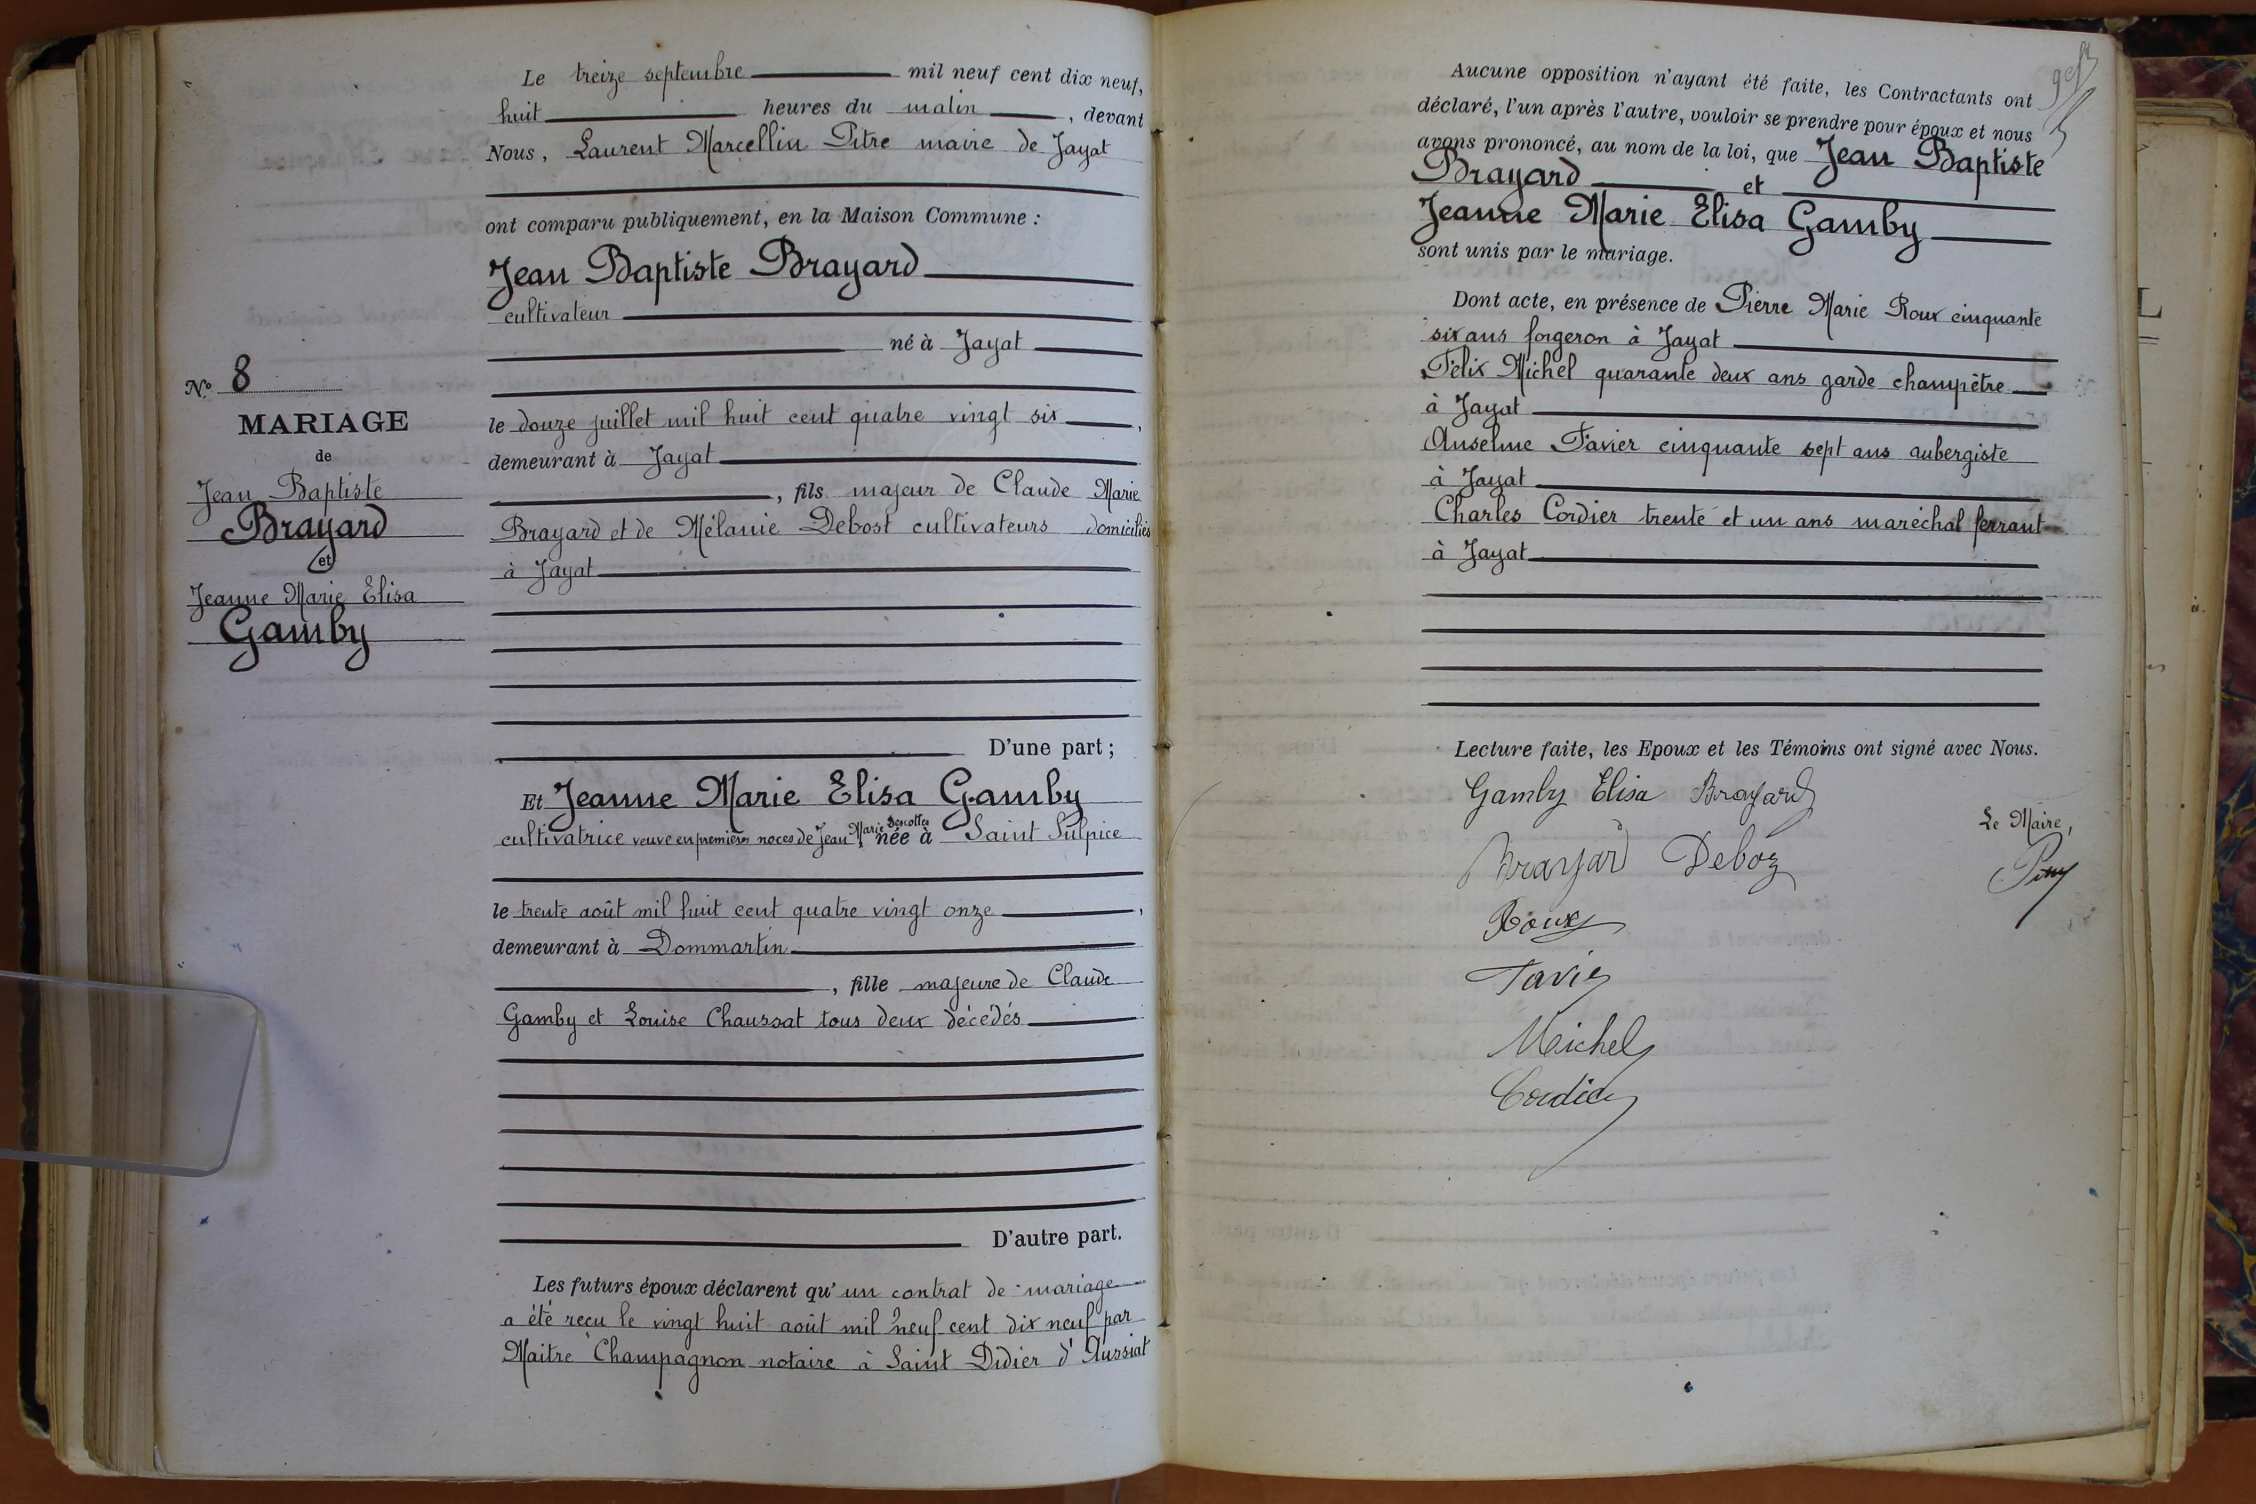 Le treize septembre mil neuf cent dix neuf,
huit heures du matin, devant
Nous, Laurent Marcellin Pitre maire de Jayat
ont comparu publiquement, en la Maison Commune :
Jean Baptiste Brayard
cultivateur
né à Jayat
le douze juillet mil huit cent quatre vingt six,
demeurant à Jayat
, fils majeur de Claude Marie
Brayard et de Mélanie Debost cultivateurs domiciliés
à Jayat
D'une part ;
Et Jeanne Marie Elisa Gamby
cultivatrice veuve en premières noces de Jean Marie Descottes née à Saint Sulpice
le trente août mil huit cent quatre vingt onze,
demeurant à Dommartin
, fille majeure de Claude
Gamby et Louise Chaussat tous deux décédés
D'autre part.
Les futurs époux déclarent qu'un contrat de mariage
a été reçu le vingt huit août mil neuf cent dix neuf par
Maitre Champagnon notaire à Saint Didier d'Aussiat
N° 8
MARIAGE
de
Jean Baptiste
Brayard
et
Jeanne Marie Elisa
Gamby
Aucune opposition n'ayant été faite, les Contractants ont
déclaré, l'un après l'autre, vouloir se prendre pour époux et nous
avons prononcé, au nom de la loi, que Jean Baptiste
Brayard et
Jeanne Marie Elisa Gamby
sont unis par le mariage.
Dont acte, en présence de Pierre Marie Roux cinquante
six ans forgeron à Jayat
Félix Michel quarante deux ans garde champêtre
à Jayat
Anselme Favier cinquante sept ans aubergiste
à Jayat
Charles Cordier trente et un ans maréchal ferrant
à Jayat
Lecture faite, les Epoux et les Témoins ont signé avec Nous.
Gamby Elisa Brayard
Le Maire,
Brayard Deboz
Roux
Favier
Michel
Cordier